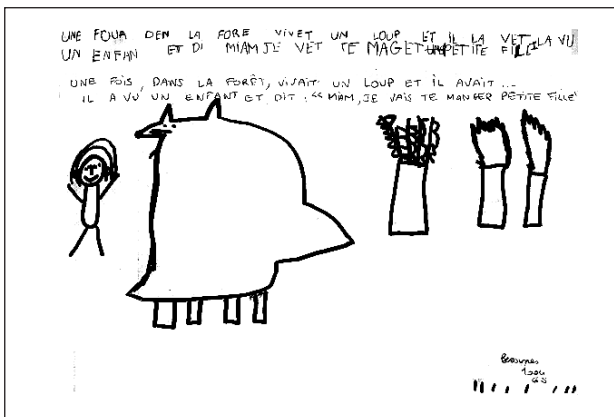 UNE FOUA DEN LA FORE VIVET UN LOUP ET IL LA VET LA VU
UN ENFAN ET DI MIAM JE VET TE MAGET PETITE FILE
UNE FOIS, DANS LA FORÊT, VIVAIT UN LOUP ET IL AVAIT...
IL A VU UN ENFANT ET DIT: "MIAM, JE VAIS TE MANGER PETITE FILLE"
GS